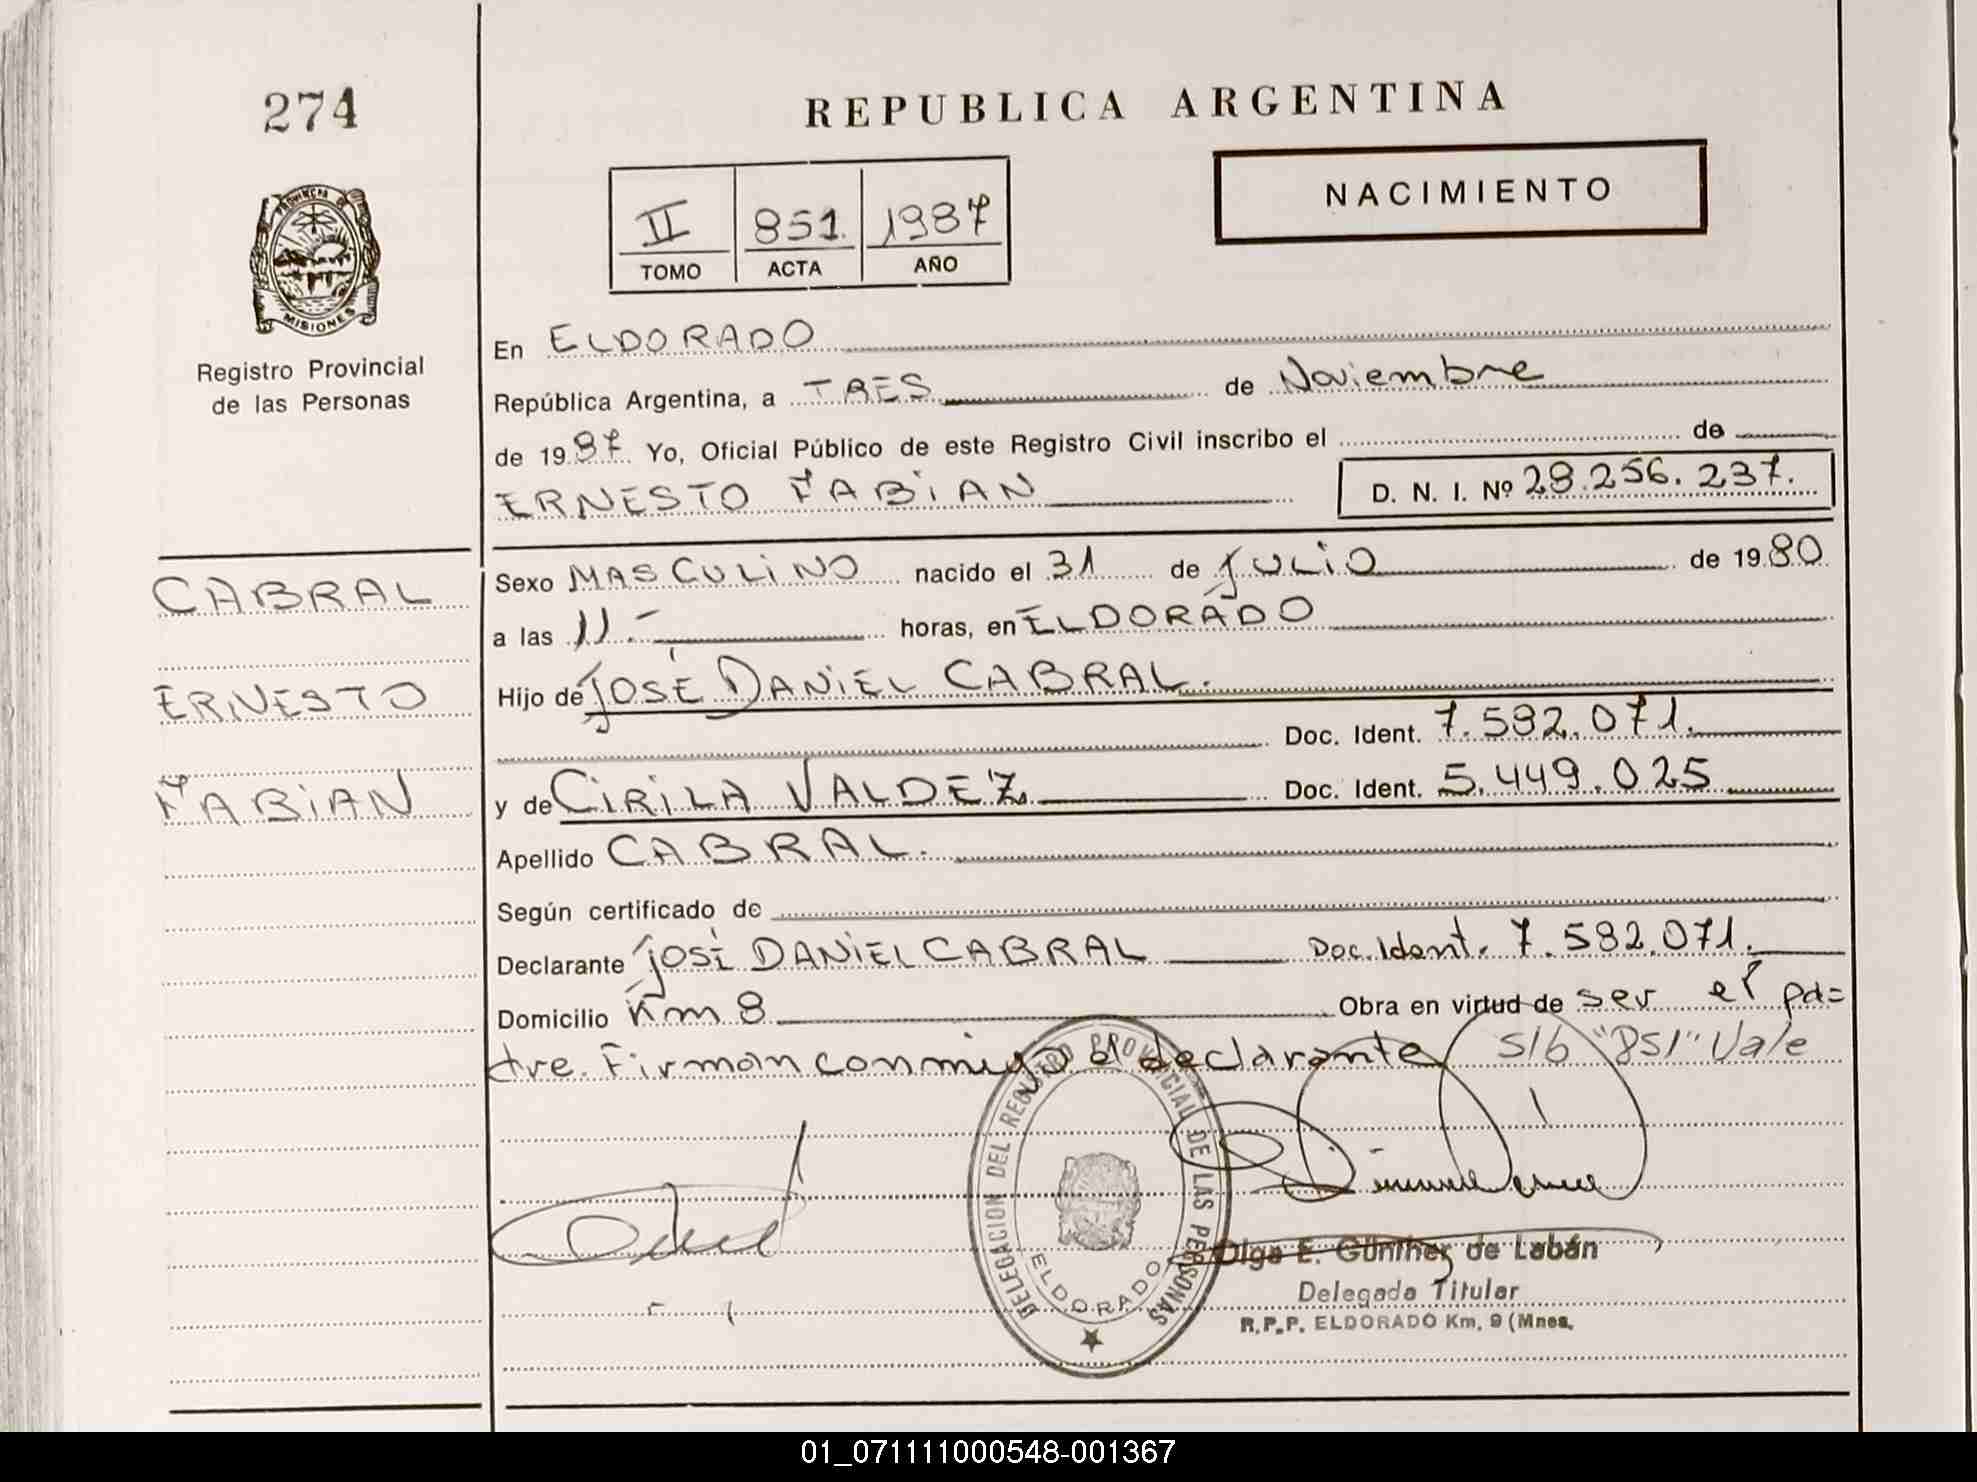 274
REPUBLICA ARGENTINA
PROVINCIA DE
MISIONES
Registro Provincial
de las Personas
II 851. 1987
TOMO ACTA AÑO
NACIMIENTO
En ELDORADO
República Argentina, a TRES de Noviembre
de 1987 Yo, Oficial Público de este Registro Civil inscribo el de
ERNESTO FABIAN D. N. I. Nº 28.256.237.
CABRAL
ERNESTO
FABIAN
Sexo MASCULINO nacido el 31 de JULIO de 1980
a las 11.- horas, en ELDORADO
Hijo de JOSÉ DANIEL CABRAL.
Doc. Ident. 7.582.071.
y de CIRILA VALDEZ Doc. Ident. 5.449.025
Apellido CABRAL.
Según certificado de
Declarante JOSÉ DANIEL CABRAL Doc. Ident. 7.582.071.
Domicilio Km 8 Obra en virtud de ser el pa=
dre. Firman conmigo el declarante S/b "851" Vale
DELEGACION DEL REGISTRO PROVINCIAL DE LAS PERSONAS
ELDORADO
Olga E. Günther de Labán
Delegada Titular
R.P.P. ELDORADO Km. 9 (Mnes.
01_071111000548-001367